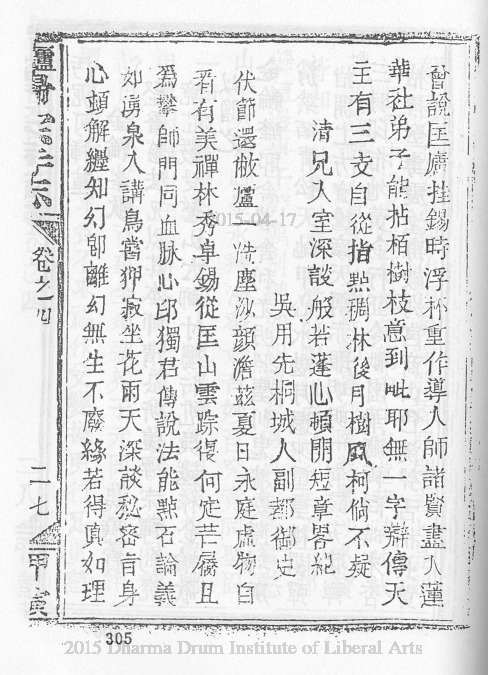 曾說匡廬挂錫時浮杯重作導人師諸賢盡入蓮
華社弟子能拈栢樹枝意到毗耶無一字辯傳天
主有三支自從指點稠林後月樹風柯倘不疑
清兄入室深談般若蓬心頓開短章畧紀
吳用先桐城人副都御史
伏節還敝廬一洗塵沙顏澹茲夏日永庭虛物自
看有美禪林秀卓錫從匡山雲踪復何定芒屩且
為攀師門同血脉心印獨君傳說法能點石論義
如湧泉入講鳥嘗狎寂坐花雨天深談秘密旨身
心頓解纏知幻卽離幻無生不廢緣若得真如理
卷之四
二七
甲寅
2015-04-17
305
2015 Dharma Drum Institute of Liberal Arts